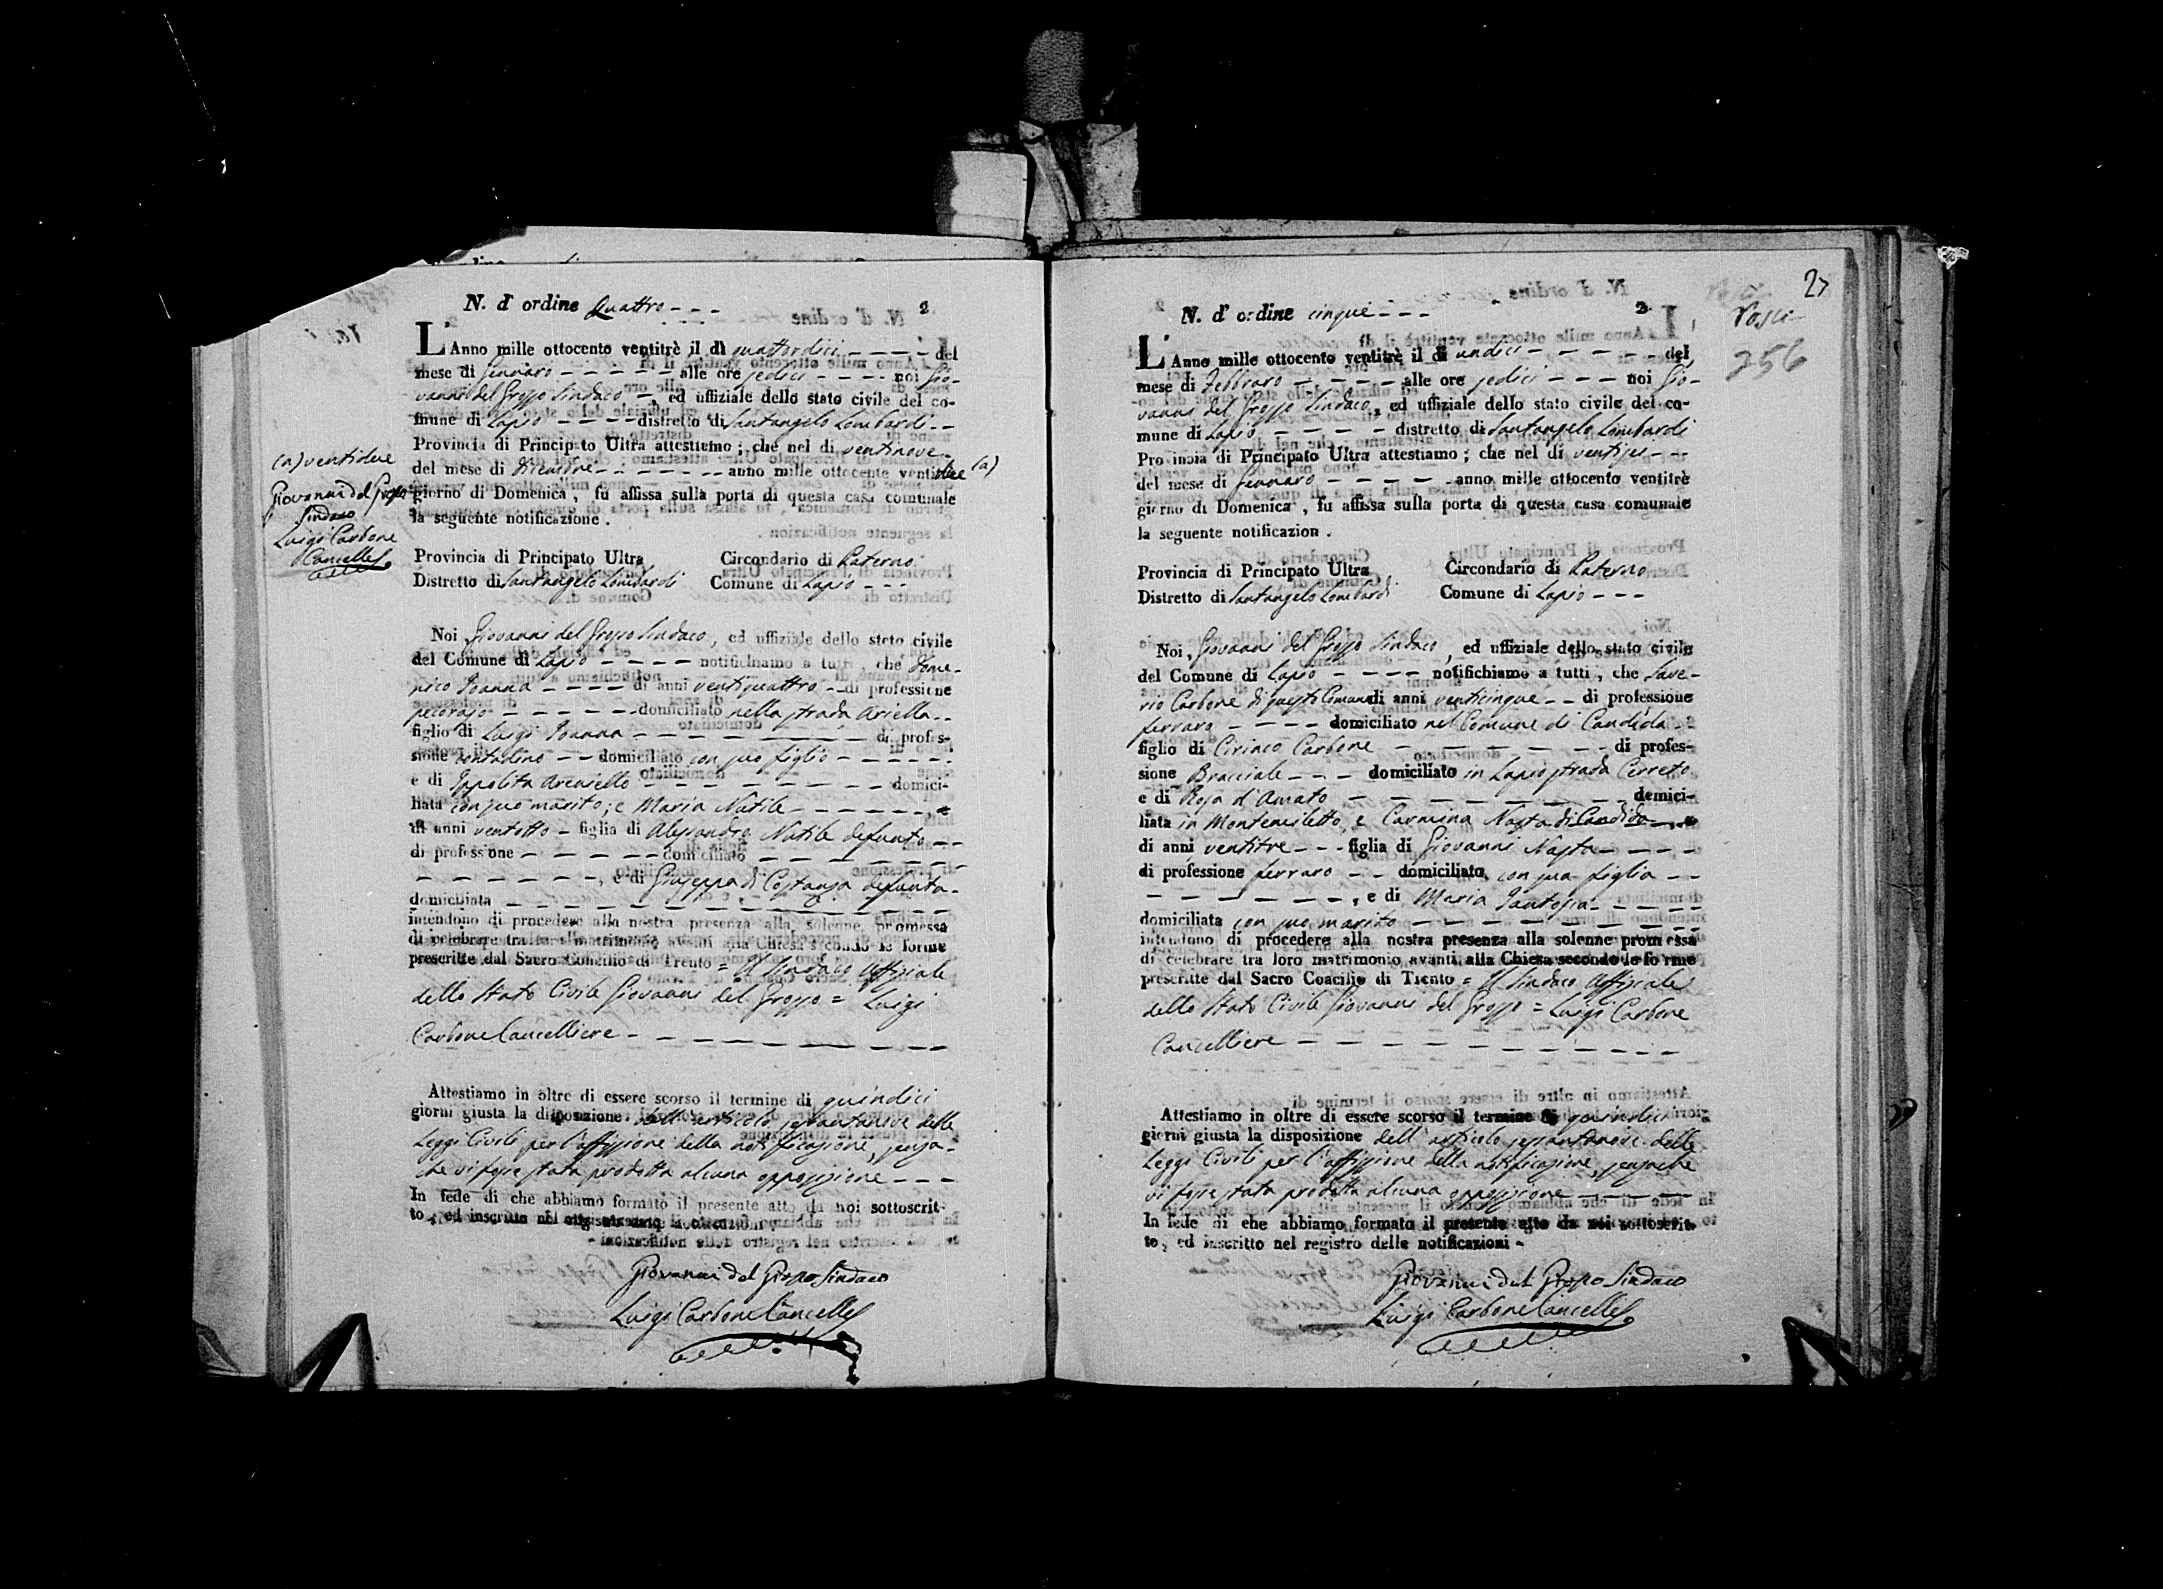 N. d' ordine Quattro - - -
2
L'Anno mille ottocento ventitrè il dì quattordici - - - - del
mese di Gennaro - - - - - alle ore sedici - - - - noi Gio-
vanni del Grosso Sindaco -, ed uffiziale dello stato civile del co-
mune di Lapio - - - - distretto di Santangelo Lombardi - -
Provincia di Principato Ultra attestiamo ; che nel di ventinove -
del mese di Decembre - - - - - - - anno mille ottocento ventidue (a)
giorno di Domenica , fu affissa sulla porta di questa casa comunale
la seguente notificazione .
(a) ventidue
Giovanni del Grosso
Sindaco
Luigi Carbone
Cancelle
Provincia di Principato Ultra Circondario di Paterno
Distretto di Santangelo Lombardi Comune di Lapio - - -
Noi Giovanni del Grosso Sindaco, ed uffiziale dello stato civile
del Comune di Lapio - - - - notifichiamo a tutti, che Dome-
nico Ioanna - - - - di anni ventiquattro - di professione
pecoraio - - - - - - domiciliato nella strada Ariella - -
figlio di Luigi Ioanna - - - - - - - - di profes-
sione contadino - - domiciliato con suo figlio - - - - - -
e di Ippolita - - - - - - - - - domici-
liata con suo marito; e Maria Natile - - - - - -, e
di anni ventotto - figlia di Alessandro Natile defunto - -
di professione - - - - - domiciliato - - - - - - -
- - - - - - -, e di Giuseppa di Costanza defunta -
domiciliata - - - - - - - - - - - - -
intendono di procedere alla nostra presenza alla solenne promessa
di celebrare tra loro matrimonio avanti alla Chiesa secondo le forme
prescritte dal Sacro Concilio di Trento = Il Sindaco Uffiziale
dello Stato Civile Giovanni del Grosso = Luigi
Carbone Cancelliere - - - - - - - - - -
Attestiamo in oltre di essere scorso il termine di quindici
giorni giusta la disposizione dell' articolo sessantanove delle
Leggi Civili per l'affissione della notificazione, senza-
che vi fosse stata prodotta alcuna opposizione - - -
In fede di che abbiamo formato il presente atto da noi sottoscrit-
to , ed inscritto nel
Giovanni del Grosso Sindaco
Luigi Carbone Cancelle
27
Vasci
256
N. d' ordine cinque - - -
2
L'Anno mille ottocento ventitrè il di undici - - - - - - del
mese di Febbraro - - - - - alle ore sedici - - - noi Gio-
vanni del Grosso Sindaco, ed uffiziale dello stato civile del co-
mune di Lapio - - - - - distretto di Santangelo Lombardi
Provincia di Principato Ultra attestiamo ; che nel di ventisei - - -
del mese di Gennaro - - - - - anno mille ottocento ventitrè
giorno di Domenica , fu affissa sulla porta di questa casa comunale
la seguente notificazion .
Provincia di Principato Ultra Circondario di Paterno
Distretto di Santangelo Lombardi Comune di Lapio - - -
Noi, Giovanni del Grosso Sindaco, ed uffiziale dello stato civile
del Comune di Lapio - - - - notifichiamo a tutti , che Save-
rio Carbone di questo Comune di anni venticinque - - di professione
ferraro - - - - domiciliato nel Comune di Candida - -
figlio di Ciriaco Carbone - - - - - - - di profes-
sione Bracciale - - - domiciliato in Lapio strada Cerreto
e di Rosa d'Amato - - - - - - - - - domici-
liata in Montemiletto, e Carmina Nasta di Candida -, e
di anni ventitre - - - figlia di Giovanni Nasta - - - -
di professione ferraro - - domiciliato, con sua figlia - -
- - - - - - -, e di Maria - - - - -
domiciliata con suo marito - - - - - - - -
intendono di procedere alla nostra presenza alla solenne promessa
di celebrare tra loro matrimonio avanti alla Chiesa secondo le forme
prescritte dal Sacro Coacilio di Trento = Il Sindaco Uffiziale
dello Stato Civile Giovanni del Grosso = Luigi Carbone
Cancelliere - - - - - - - - - - - -
Attestiamo in oltre di essere scorso il termine di quindici
giorni giusta la disposizione dell' articolo sessantanove delle
Leggi Civili per l'affissione della notificazione, senzache
vi fosse stata prodotta alcuna opposizione - - - - -
In fede di che abbiamo formato il presente atto da noi sottoscrit-
to , ed inscritto nel registro delle notificazioni -
Giovanni del Grosso Sindaco
Luigi Carbone Cancelle